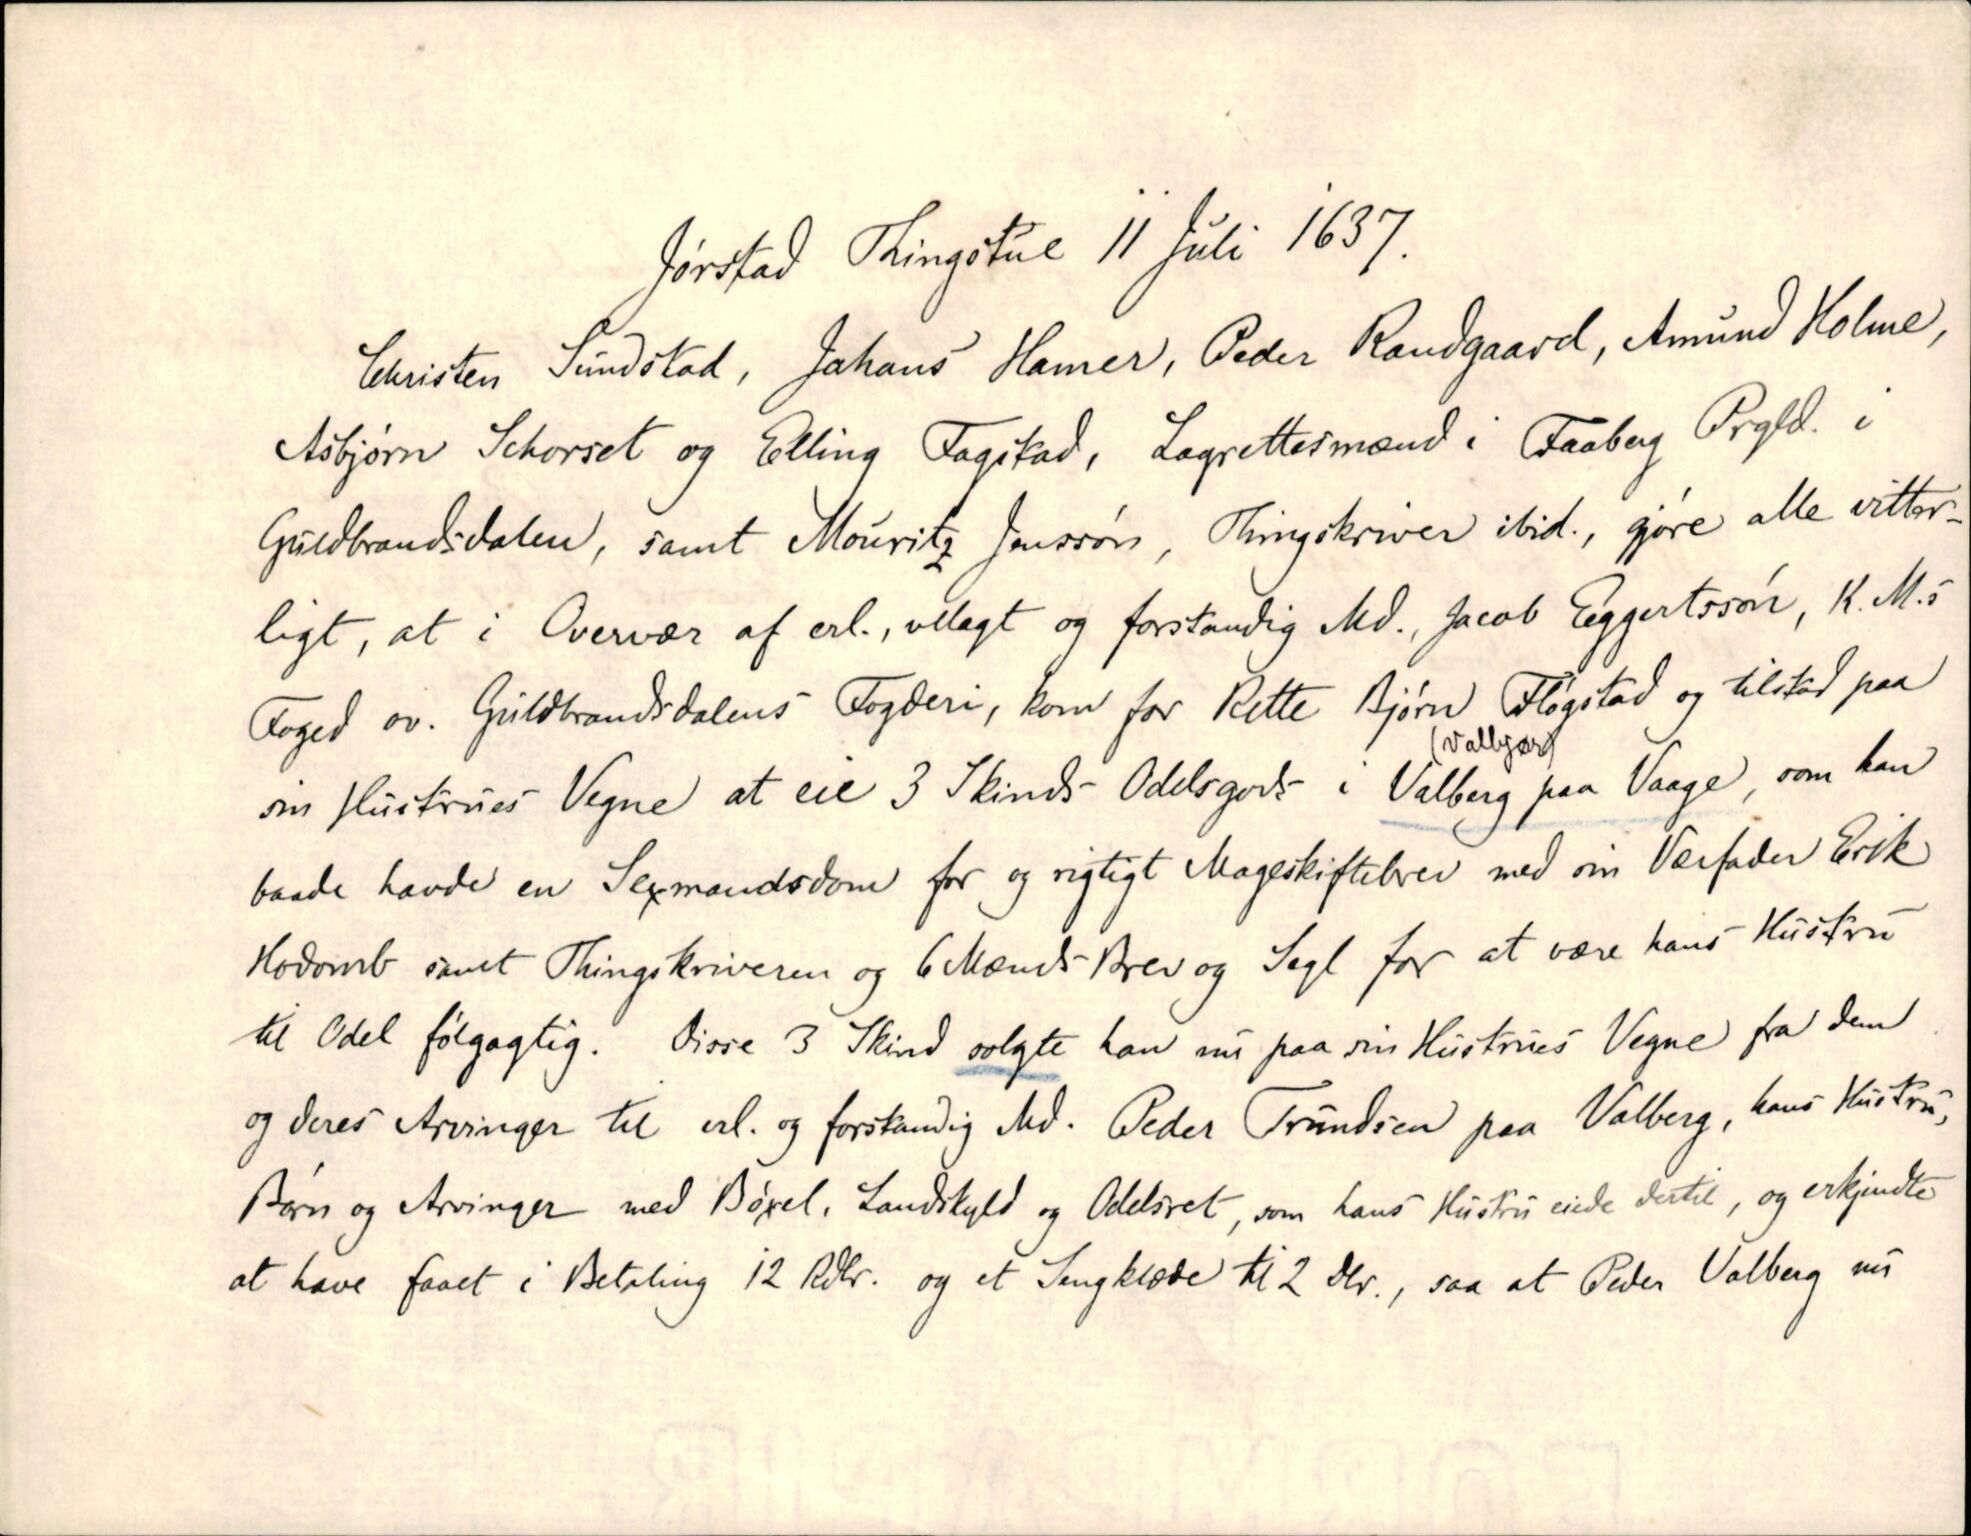 Jórstad Thingstue 11 Juli 1637.
Christen Sundstad, Johans Hamer, Peder Randgaard, Amund Holme,
Asbjørn Schorset og Elling Fagstad, Lagrettesmænd i Faaberg Prgld. i
Guldbrandsdalen, samt Mouritz Jenssøn, Thingskriver ibid., gjøre alle vitter-
ligt, at i Overvær af erl., vellagt og forstandig Md., Jacob Eggertssøn, K. M.s
Foged ov. Guldbrandsdalens Fogderi, kom for Rette Bjørn Fløgstad og tilstod paa
(Valbjør)
sin Hustrues Vegne at eie 3 Skinds Odelsgods i Valberg paa Vaage, som han
baade havde en Sexmandsdom for og rigtigt Mageskiftebrev med sin Værfader Erik
Hodomb samt Thingskriveren og 6 Mænds Brev og Segl for at være hans Hustru
til Odel følgagtig. Disse 3 Skind solgte han nu paa sin Hustrues Vegne fra dem
og deres Arvinger til erl. og forstandig Md. Peder Trundsen paa Valberg, hans Hustru,
Børn og Arvinger med Bøxel, Landskyld og Odelsret, som hans Hustru eiede dertil, og erkjendte
at have faaet i Betaling 12 Rdlr. og et Sengklæde til 2 Dlr., saa at Peder Valberg nu